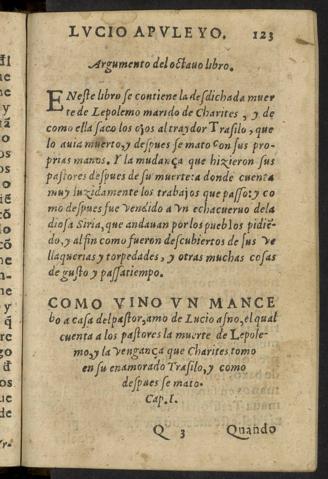 LVCIO APVLEYO. 123
Argumento del octauo libro.
ENeste libro se contiene la desdichada muer
te de Lepolemo marido de Charites, y de
como ella saco los ojos al traydor Trasilo, que
lo auia muerto, y despues se mato con sus pro-
prias manos. Y la mudança que hizieron sus
pastores despues de su muerte: a donde cuenta
muy luzidamente los trabajos que passo: y co
mo despues fue vendido a vn echacueruo de la
diosa Siria, que andauan por los pueblos pidiẽ-
do, y al fin como fueron descubiertos de sus ve
llaquerias y torpedades, y otras muchas cosas
de gusto y passatiempo.
COMO VINO VN MANCE
bo a casa del pastor, amo de Lucio asno, el qual
cuenta a los pastores la muerte de Lepole-
mo, y la vengança que Charites tomo
en su enamorado Trasilo, y como
despues se mato.
Cap. I.
Q 3 Quando